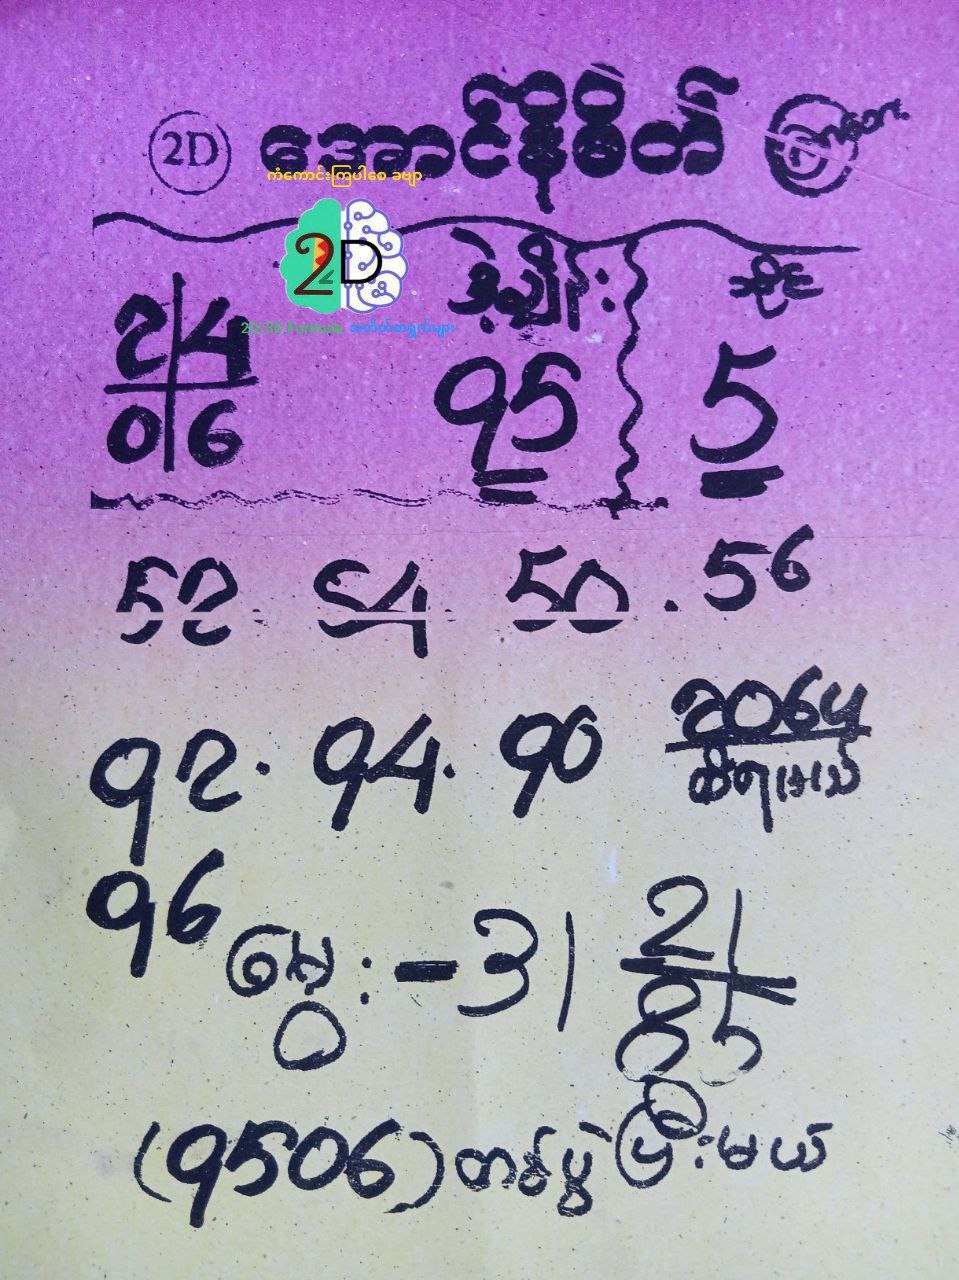 2D အောင်နိမိတ်
ကံကောင်းကြပါစေ ခဗျာ
2D
2D/3D Formula အတိတ်စာရွက်များ
ဒဲ့ချိန်း ဘိုင်
24
06
95 5
52. 54. 50. 56
92. 94. 90 2064
ထိရမယ်
96
မွေး - 31
2
(9506) တစ်ပွဲပြီးမယ်